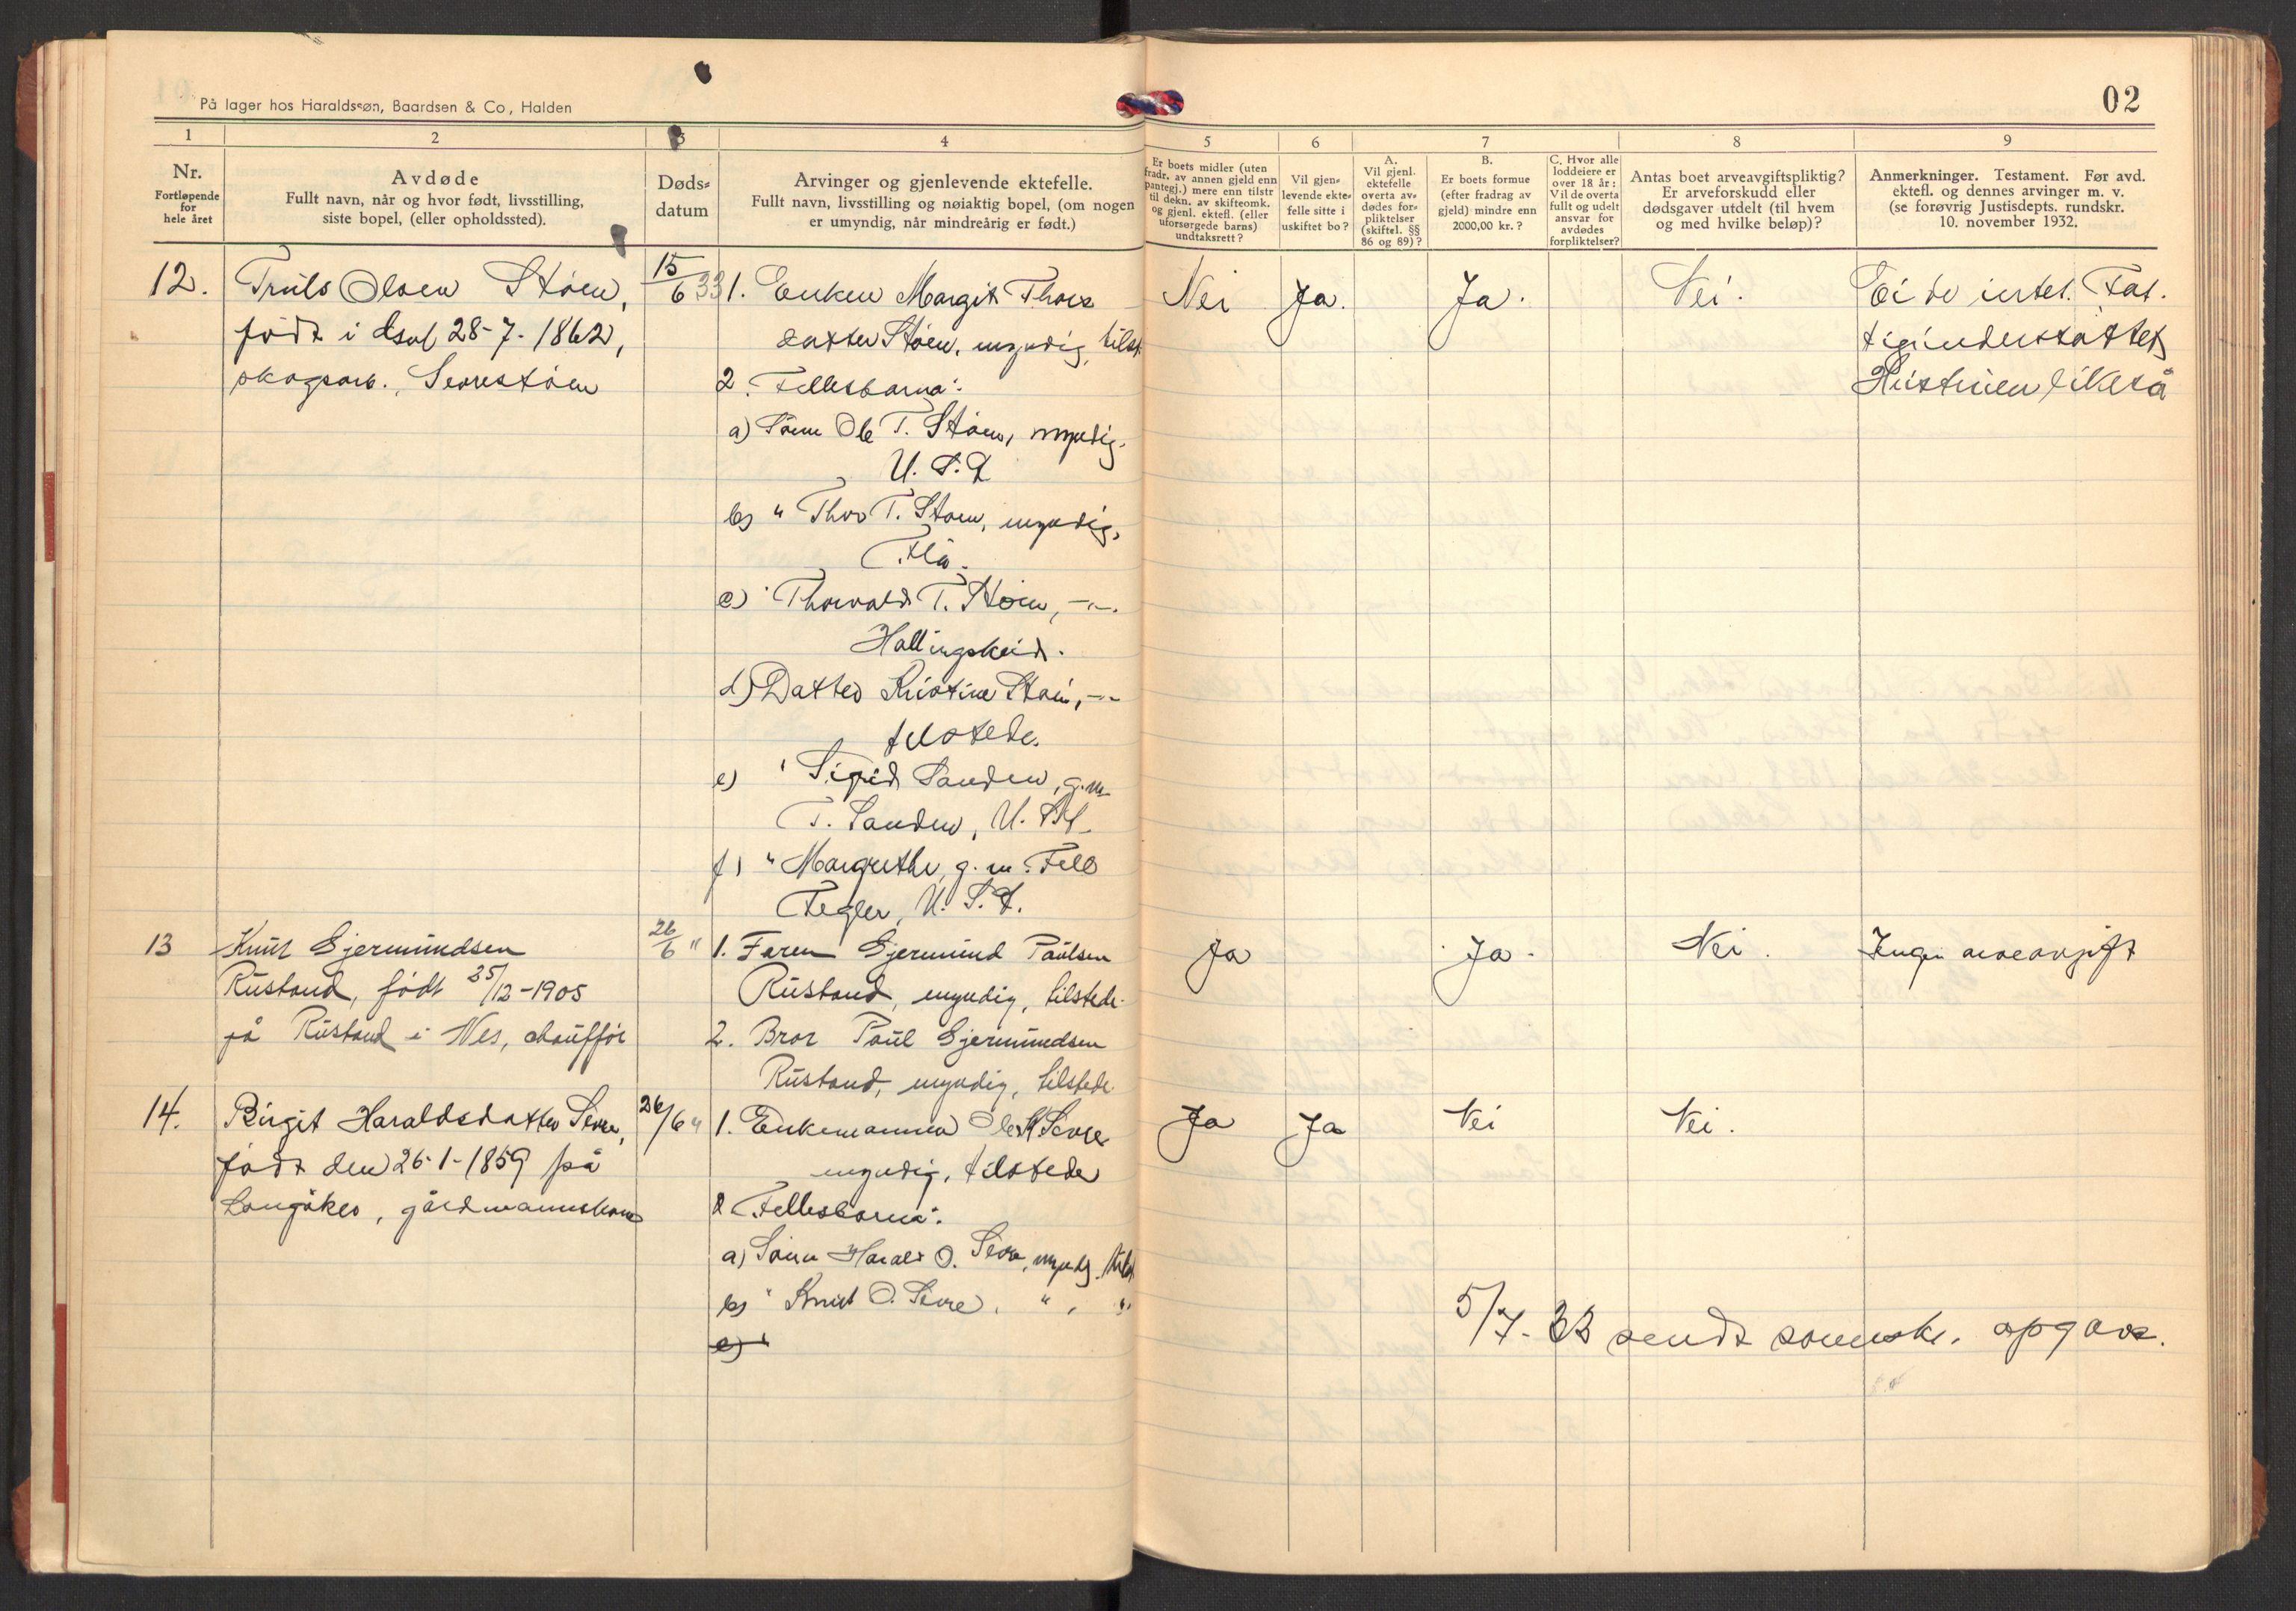 02
På lager hos Haraldssøn, Baardsen & Co, Halden
1 2 3 4 5 6 7 8 9
Nr.
Fortløpende
for
hele året
Avdøde
Fullt navn, når og hvor født, livsstilling,
siste bopel, (eller opholdssted).
Døds-
datum
Arvinger og gjenlevende ektefelle.
Fullt navn, livsstilling og nøiaktig bopel, (om nogen
er umyndig, når mindreårig er født.)
Er boets midler (uten
fradr. av annen gjeld enn
pantegj.) mere enn tilstr
til dekn. av skifteomk.
og gjenl. ektefl. (eller
uforsørgede barns)
undtaksrett?
Vil gjen-
levende ekte-
felle sitte i
uskiftet bo?
A.
Vil gjenl.
ektefelle
overta av-
dødes for-
pliktelser
(skiftel. §§
86 og 89)?
B.
Er boets formue
(efter fradrag av
gjeld) mindre enn
2000,00 kr.?
C. Hvor alle
loddeiere er
over 18 år:
Vil de overta
fullt og udelt
ansvar for
avdødes
forpliktelser?
Antas boet arveavgiftspliktig?
Er arveforskudd eller
dødsgaver utdelt (til hvem
og med hvilke beløp)?
Anmerkninger. Testament. Før avd.
ektefl. og dennes arvinger m. v.
(se forøvrig Justisdepts. rundskr.
10. november 1932.
12.
Truls Olsen Støen,
født i 28-7-1862,
skogsarb., Sevrestøen
15/6 33
1. Enken Margit Thors
datter Støen, myndig, tilst.
2. Fellesbarna:
a) Sønn Ole T. Støen, myndig.
U. S. A
b) " Thor T. Støen, myndig,
Flå.
c) " Thorvald T. Støen, -"-.
Hallingskeid.
d) Datter Kristine Støen, -"-
tilstede.
e) " Sigrid Sanden, g. m.
T. Sanden, U. S. A.
f) " Margrethe, g. m.
U. S. A.
Nei
Ja.
Ja.
Nei.
Ei de
Hustruen likeså
13
Knut Gjermundsen
Rustand, født 25/12-1905
på Rustand i Nes, chauffør
26/6 "
1. Faren Gjermund Paulsen
Rustand, myndig, tilstede.
2. Bror Paul Gjermundsen
Rustand, myndig, tilstede.
Ja
Ja.
Nei.
Ingen arveavgift
14.
Birgit Haraldsdatter Sevre,
født den 26-1-1859 på
Langåker, gårdmannskone
26/6 "
1. Enkemannen Ole H Sevre
myndig, tilstede
2 Fellesbarna:
a) Sønn Harald O. Sevre, myndig. tilst.
b) " Knut O. Sevre, " , "
c) "
Ja
Ja
Nei
Nei.
5/7-33 sendt opgave.